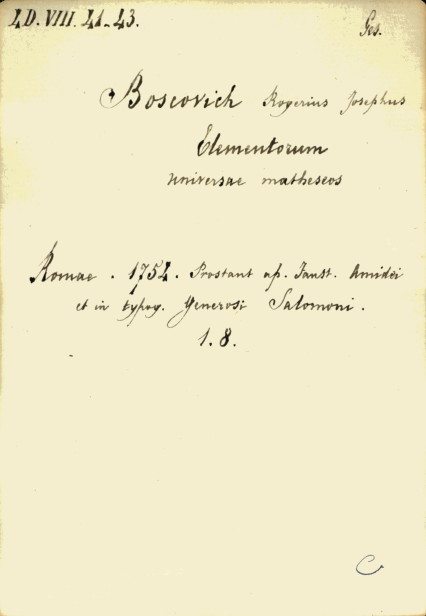 4D. VIII. 41-43.
Ges.
Boscovich Rogerius Josephus
Elementorum
universae matheseos
Romae. 1754. Prostant ap. Faust. Amidei
et in typog. Generosi Salomoni.
1. 8.
C